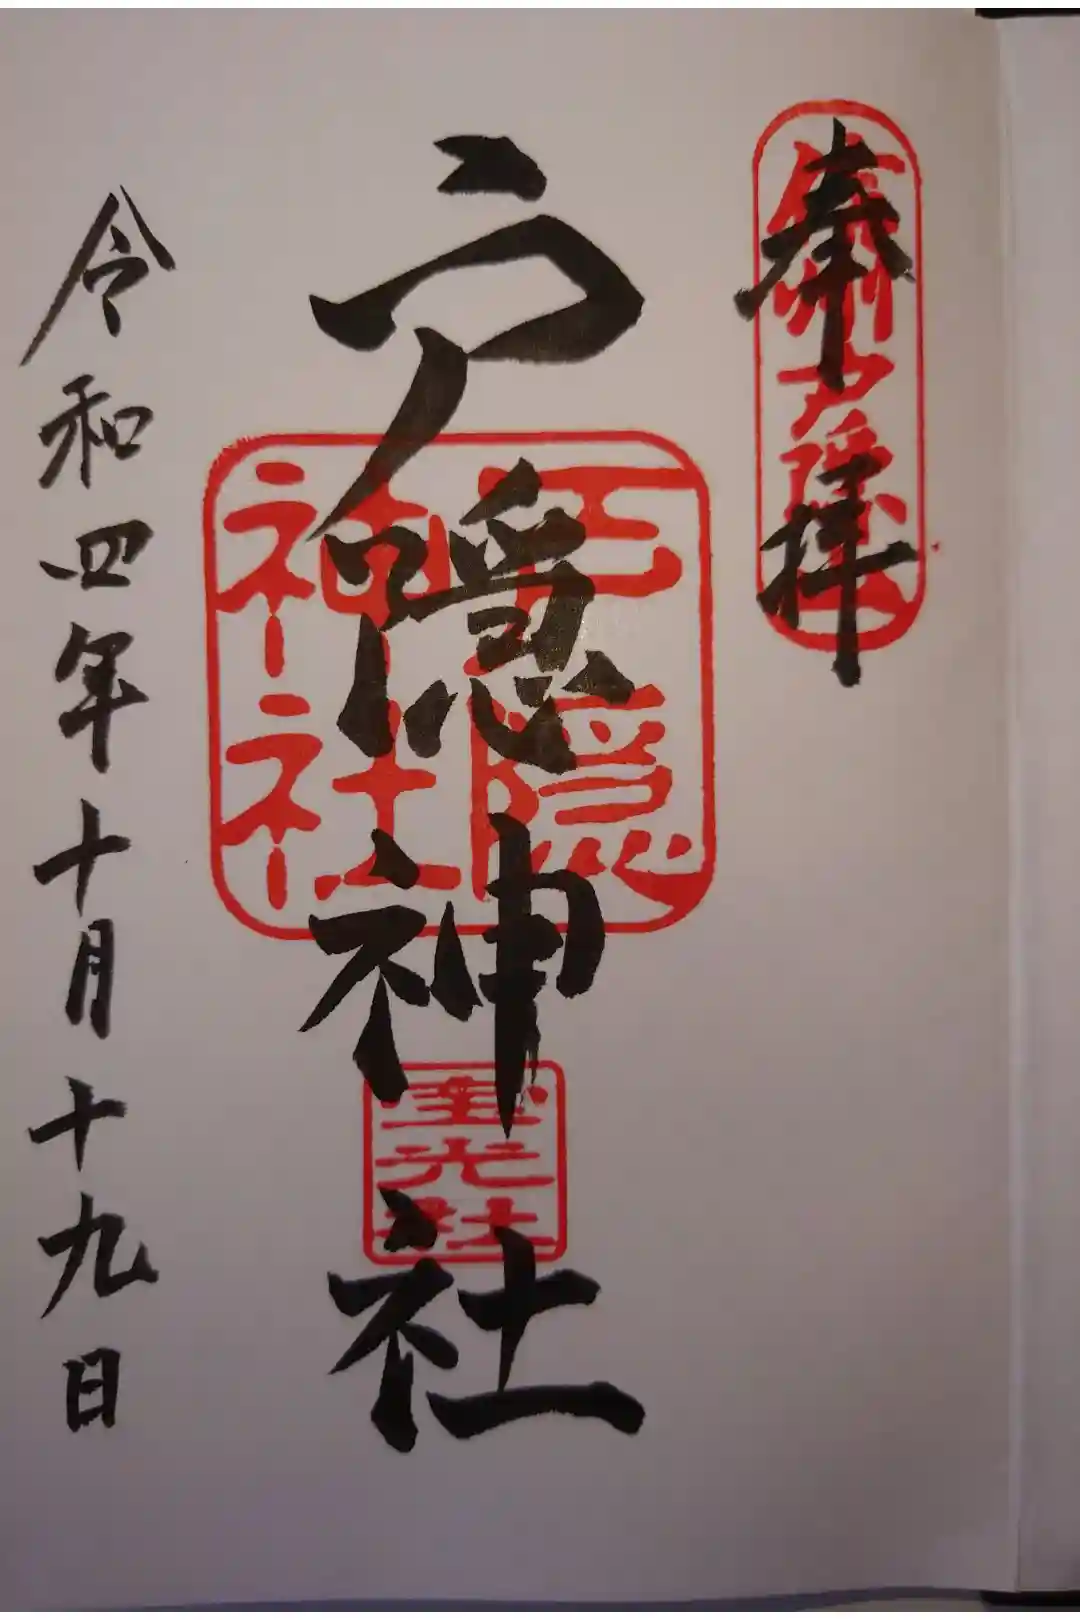 奉拝
信州戸隠山
戸隠神社
戸隠
神社
宝光社
令和四年十月十九日